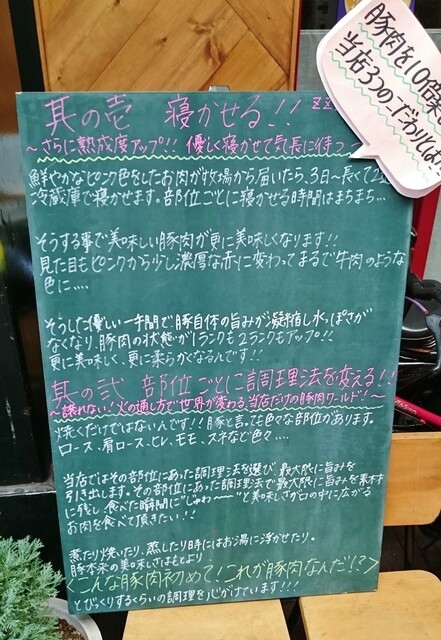 豚肉を10倍楽
当店3つのこだわりとは
其の壱 寝かせる!! zz
～さらに熟成度アップ!! 優しく寝かせて気長に待つ
鮮やかなピンク色をしたお肉が牧場から届いたら、3日～長くて2週
冷蔵庫で寝かせます。部位ごとに寝かせる時間はまちまち…
そうする事で美味しい豚肉が更に美味しくなります!!
見た目もピンクから少し濃厚な赤に変わってまるで牛肉のような
色に….
そうした優しい一手間で豚自体の旨みが凝縮し水っぽさが
なくなり、豚肉の状態が1ランクも2ランクもアップ!!
更に美味しく、更に柔らかくなるんです!!
其の弐 部位ごとに調理法を変える!!
～譲れない!火の通し方で世界が変わる、当店だけの豚肉ワールド!～
焼くだけではないんです!!豚と言っても色々な部位があります。
ロース、肩ロース、ヒレ、モモ、スネなど色々….
当店ではその部位にあった調理法を選び、最大限に旨みを
引き出します。その部位にあった調理法で最大限に旨みを素材
に残し、食べた瞬間に"じゅわ～～"と美味しさが口の中に広がる
お肉を食べて頂きたい!!
煮たり焼いたり、蒸したり時にはお湯に浮かせたり。
豚本来の美味しさはもとより
<こんな豚肉初めて!これが豚肉なんだ!?>
とびっくりするくらいの調理を心がけています!!!